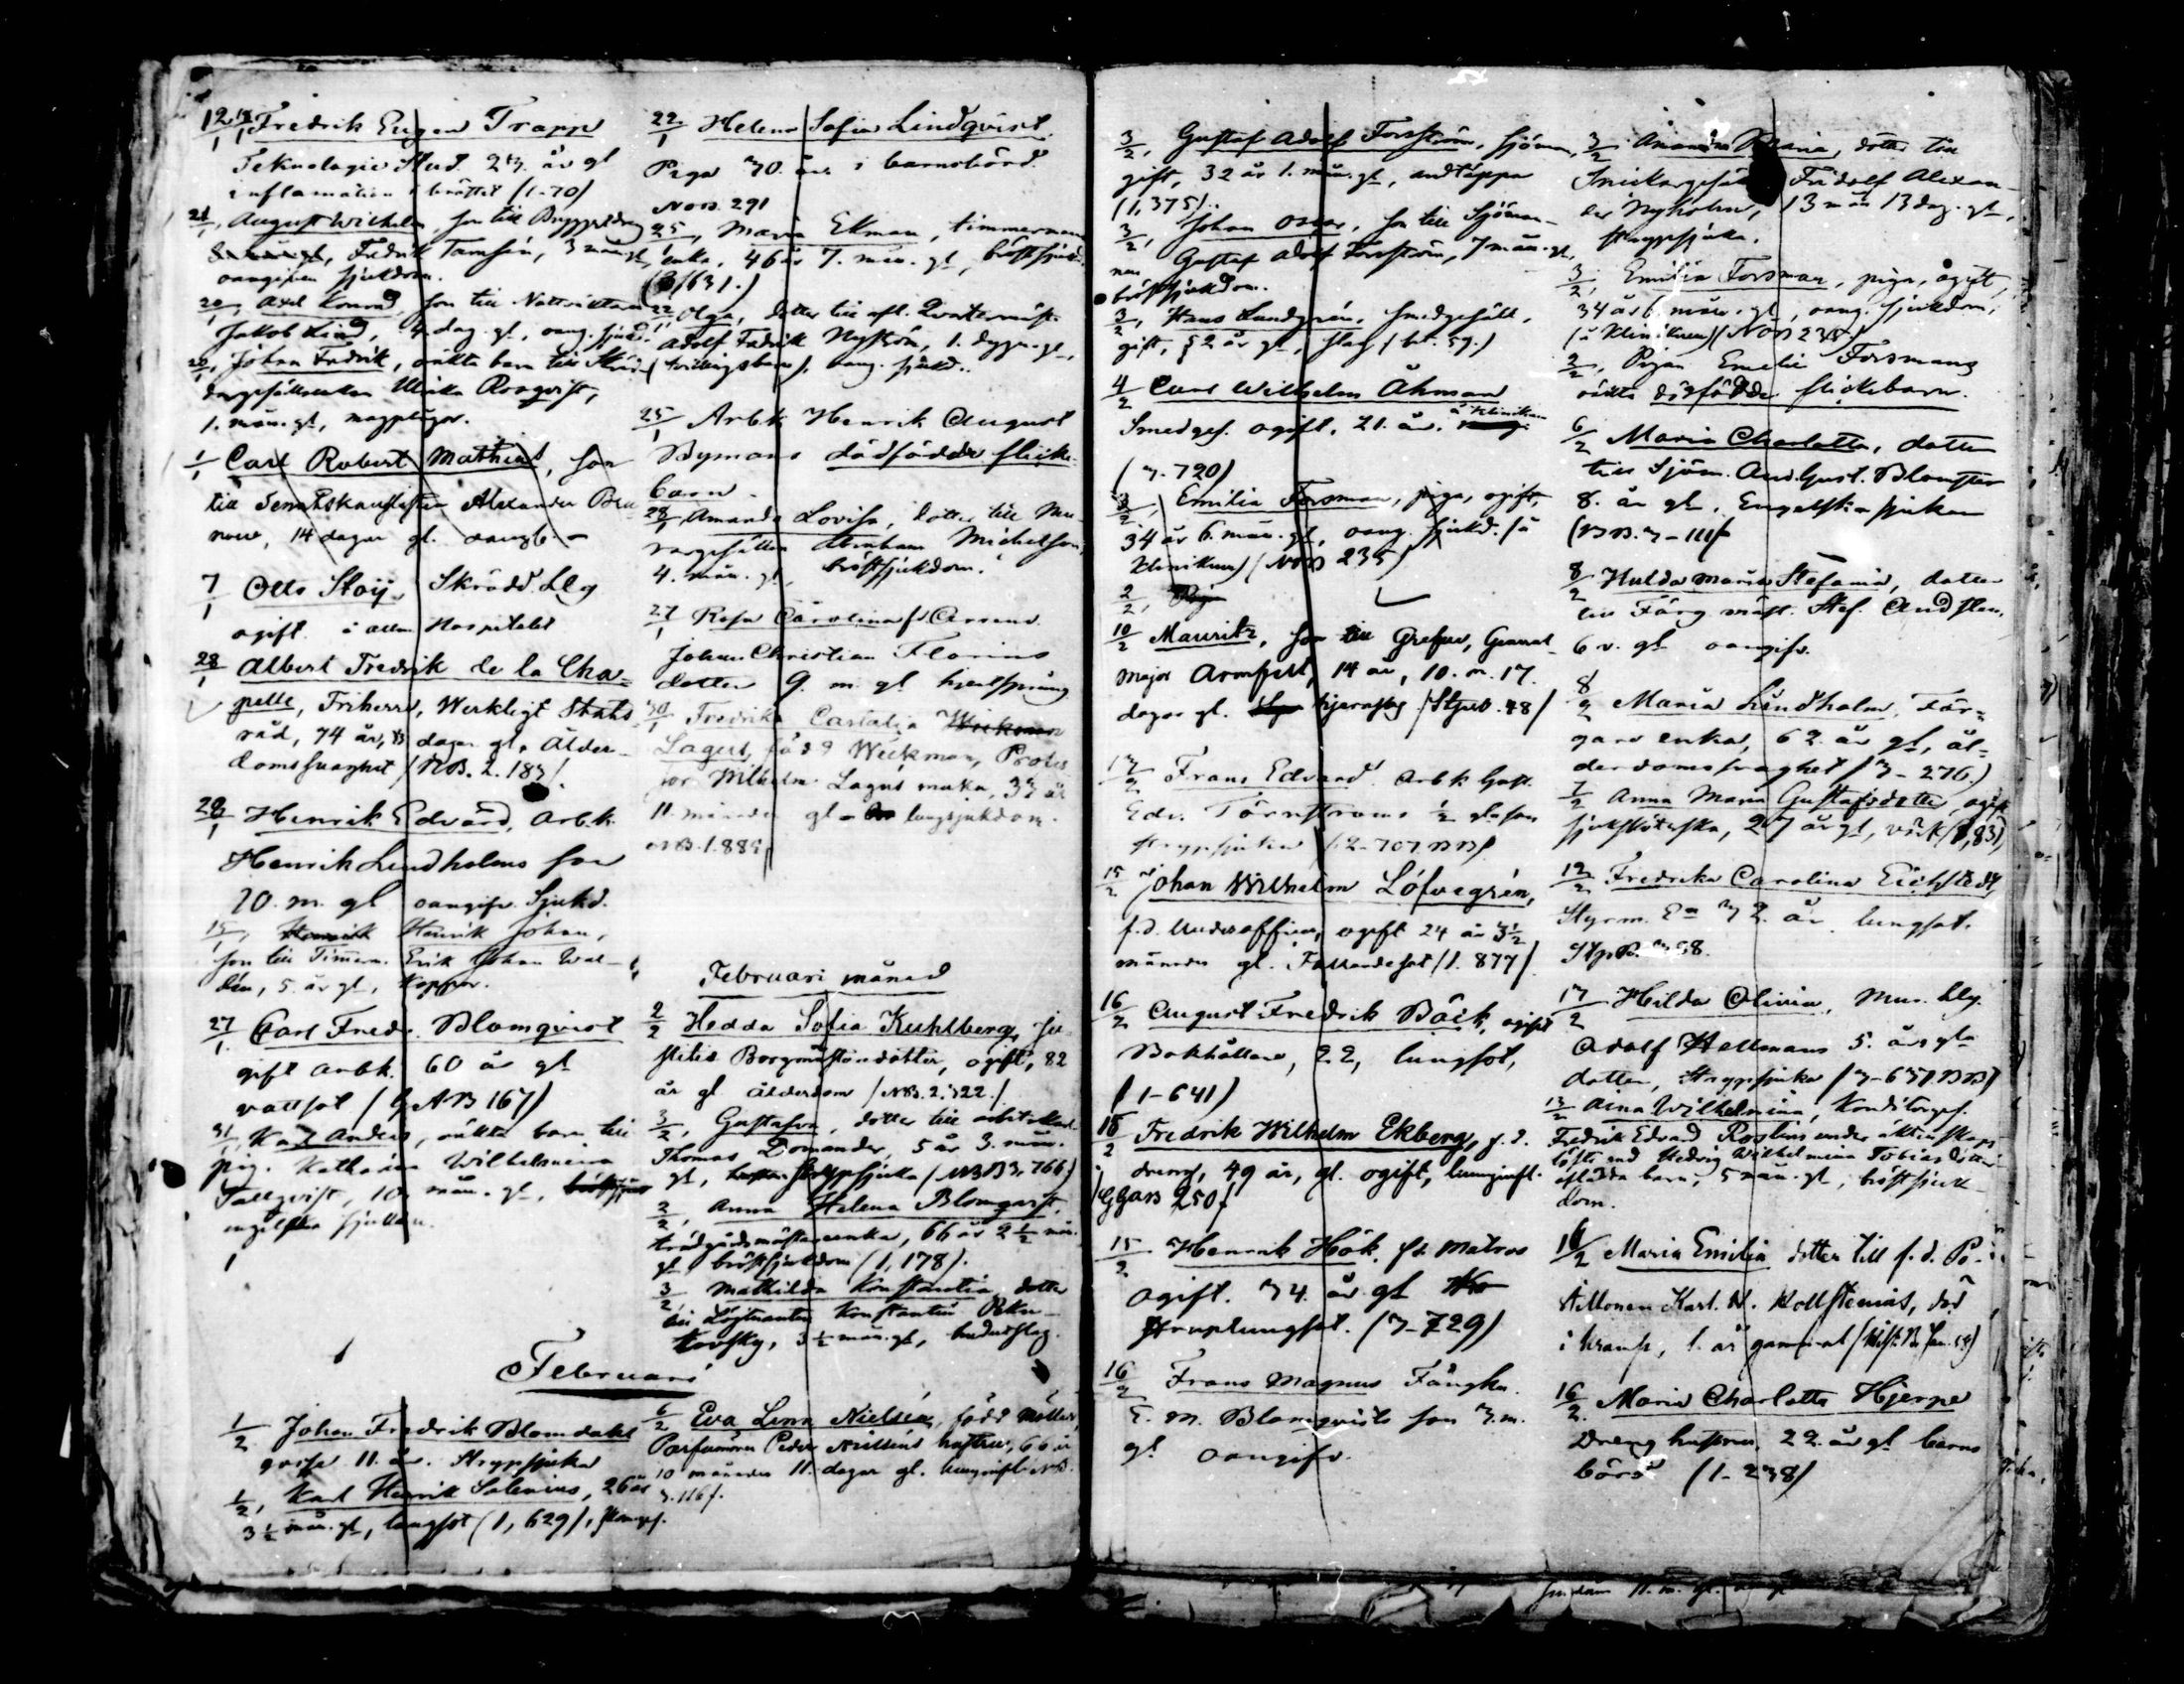 12/1 Fredrik Eugen Trapp
Teknologie Stud. 23. år gl
inflamation i bröstet (1-70)
21/1, August Wilhelm, son till
Fredrik Tamsén, 3 mån. gl,
oangifven sjukdom.
20/1, Axel Konrad, son till Nattväktaren
Jakob Lind, 4. dag. gl, oang. sjukd.
20/1, Johan Fredrik, oäkta barn till
Ulrika Rosqvist,
1. mån. gl, magplågor.
1/1 Carl Robert Mathias, son
till Senatskanslisten Alexander
14 dagar gl. oangifv.
7/1 Otto Skrädd. Llg
ogift. å allm. Hospitalet
28/1 Albert Fredrik de la Cha-
pelle, Friherre, Werkligt Stats
råd, 74 år, dagar gl, Ålder-
domssvaghet /NB. 2. 183/.
28/1 Henrik Edvard, Arb.k.
Henrik Lindholms son
10. m. gl oangifv. Sjukd.
15/1, Henrik Johan,
son till Timm. Erik Johan Wal-
dén, 5. år gl, Koppor.
27/1 Carl Fredr. Blomqvist
gift arb.k. 60 år gl
vattsot (G AB 167)
31/1, Karl Anders, oäkta barn till
pig. Katharina Wilhelmina
Tallqvist, 10. mån. gl,
engelska sjukan.
Februari
1/2 Johan Fredrik Blomdahl
gosse 11. år. Strypsjuka
1/2, Karl Henrik Salenius, 26 år
3 1/2 mån. gl, lungsot (1, 629),
22/1 Helena Sofia Lindqvist
Piga 30. år i barnsbörd.
NoB. 291
25/1, Maria Ekman, timmermans
enka, 46 år 7. mån. gl, bröstsjukd.
(3/631.)
22/1 Olga, dotter till afl. Qvartermäst.
Adolf Fredrik Nyström, 1. dygn. gl,
(tvillingsbarn), oang. sjukd..
25/1 Arb.k Henrik August
Bymans dödfödda flicke-
barn.
28/1, Amanda Lovisa, dotter till Mu-
raregesällen Abraham Michelsson,
4. mån. gl, bröstsjukdom.
27/1 Rosa Carolina
Johan Christian Florins
dotter 9. m. gl hjertsprång
30/1 Fredrika Castalia
Lagus, född Weckman, Profes
sor Wilhelm Lagus' maka, 33 år
11. månader gl - lungsjukdom.
Februari månad
2/2 Hedda Sofia Kuhlberg, Ju-
stitie Borgmästaredotter, ogift, 82
år gl ålderdom /NB. 2. 322./
3/2, Gustafva, dotter till
Thomas Domander, 5 år 3. mån.
gl, strypsjuka (NBB 3, 766)
2/2, Anna Helena Blomqvist,
trädgårdsmästareenka, 66 år 2 1/2 mån.
gl bröstsjukdom (1, 178).
3/2, Mathilda Konstantia, dotter
till Löjtnanten Konstantin
3 1/2 mån. gl,
6/2 Eva Lena Nielsén, född Möller,
Parfumören Peder Nielséns hustru, 66 år
10 månader 11. dagar gl. lunginfl. NB.
3. 116/.
3/2, Gustaf Adolf Forsström, sjöman,
gift, 32 år 1. mån. gl, andtäppa
(1, 375).
3/2, Johan Oscar, son till Sjöman-
nen Gustaf Adolf Forsström, 7 mån. gl,
bröstsjukdom.
3/2, Hans Lundgrén, smedgesäll,
gift, 52 år gl, slag (bl. 59.)
4/2 Carl Wilhelm Åhman
Smedges. ogift. 21. år. å Kliniken
(3. 720)
3/2, Emilia Forsman, piga, ogift,
34 år 6. mån. gl, oang. sjukd. (å
Kliniken) (NoB 235)
2/2,
10/2 Mauritz, son till Grefve, General
major Armfelt, 14 år, 10. m. 17.
dagar gl. hjernslag /Stjbb. 48/
13/2 Frans Edvard Arb.k Gust.
Edv. Törnströms 1/2 gl son
strypsjuka (2-707 BB)
15/2 Johan Wilhelm Löfvegrén,
f.d. Underofficer, ogift 24 år 3 1/2
månader gl. Fallandesot /1. 877/
16/2 August Fredrik Bäck, ogift
Bokhållare, 22, lungsot,
(1-641)
18/2 Fredrik Wilhelm Ekberg, f.d.
dreng, 49 år, gl. ogift, lunginfl.
250/
15/2 Henrik Hök, f.d. Matros
ogift. 34. år gl
Struplungsot. (3-729)
16/2 Frans Magnus Fångkn.
E. M. Blomqvists son 3. m.
gl oangifv.
3/2 Amanda Maria, dotter till
Snickargesällen Fridolf Alexan-
der Nyholm, 3 mån 13 dag. gl,
strypsjuka.
3/2, Emilia Forsman, piga, ogift,
34 år 6. mån. gl, oang. sjukdom,
(å Kliniken) (NoB 235)
2/2, Pigan Emilie Forsmans
oäkta dödfödda flickebarn.
6/2 Maria Charlotta, dotter
till Sjöm. And. Gust. Blomster
8. år gl. Engelska sjukan
(BB. 3-111)
8/2 Hulda Maria Stefania, dotter
till Färg. mäst. Stef.
6 v. gl oangifv.
8/2 Maria Lindholm, Fär-
gare enka, 62. år gl, ål-
derdomssvaghet (3-276.)
7/2 Anna Maria Gustafsdotter, ogift
sjuksköterska, 27 år gl,
12/2 Fredrika Carolina Eichstedt,
Styrm. Ea 32. år lungsot.
17/2 Hilda Olivia, Mur. Llg.
Adolf Hellmans 5. års gla
dotter, Strypsjuka (3-637. BB)
13/2 Aina Wilhelmina, Konditorges.
Fredrik Edvard Roslins under äktenskaps
löfte med Hedvig Wilhelmina Tobiasdotter
aflade barn, 5 mån. gl, bröstsjuk-
dom.
16/2 Maria Emilia dotter till f.d. Po-
stillonen Karl. N. Hollstenius, död
i kramp, 1. år gammal
16/2 Maria Charlotta Hjerpe
Dreng hustru, 22. år gl barns
börd (1-238)